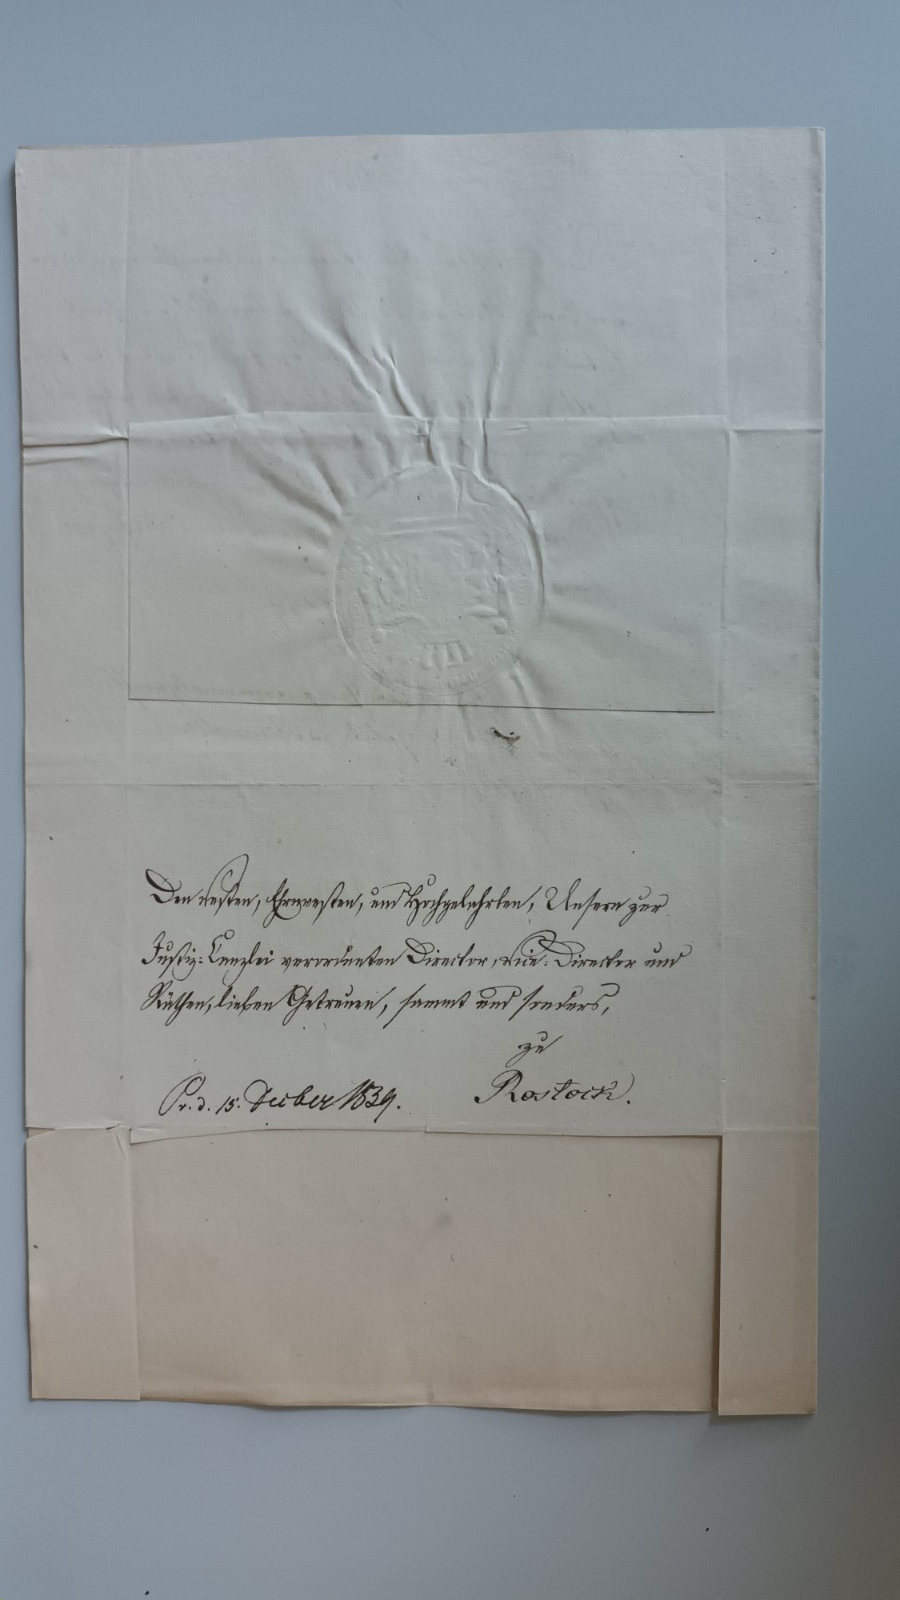 Den Vesten, Ehrnvesten, und Hochgelahrten, Unsern zur
Justiz-Canzlei verordneten Director, Vice-Director und
Räthen, lieben Getreuen, sammt und sonders,
zu
Rostock.
Pr. d. 15. Decber 1839.